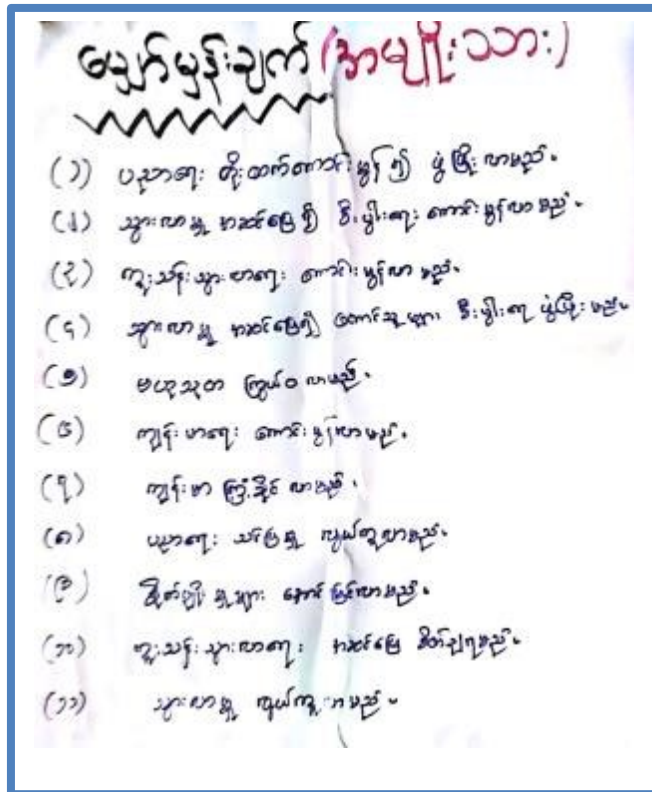 မျှော်မှန်းချက် (အမျိုးသား)
(၁) ပညာရေး တိုးတက်ကောင်းမွန်၍ ဖွံ့ဖြိုးလာမည်။
(၂) သွားလာမှု အဆင်ပြေ၍ စီးပွါးရေး ကောင်းမွန်လာမည်။
(၃) ကူးသန်းသွားလာရေး ကောင်းမွန်လာမည်။
(၄) သွားလာမှု အဆင်ပြေ၍ တောင်သူများ စီးပွါးရေး ဖွံ့ဖြိုးမည်။
(၅) ဗဟုသုတ ကြွယ်ဝလာမည်။
(၆) ကျန်းမာရေး ကောင်းမွန်လာမည်။
(၇) ကျန်းမာ ကြံ့ခိုင်လာမည်။
(၈) ပညာရေး သင်ပြမှု လွယ်ကူလာမည်။
(၉) စိုက်ပျိုးမှုများ အောင်မြင်လာမည်။
(၁၀) ကူးသန်းသွားလာရေး အဆင်ပြေ စိတ်ချရမည်။
(၁၁) သွားလာမှု လွယ်ကူလာမည်။